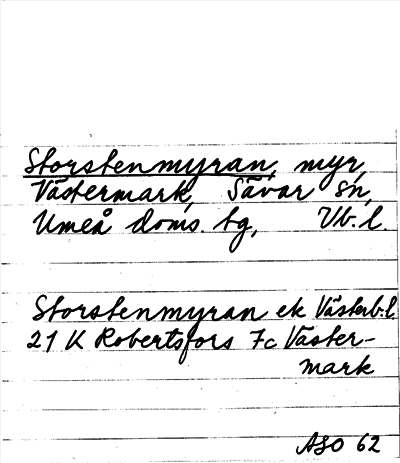 Storstenmyran, myr,
Västermark, Sävar sn,
Umeå doms. tg, Vb. l.
Storstenmyran ek Västerb. l
21 K Robertsfors 7c Väster-
mark
ASO 62